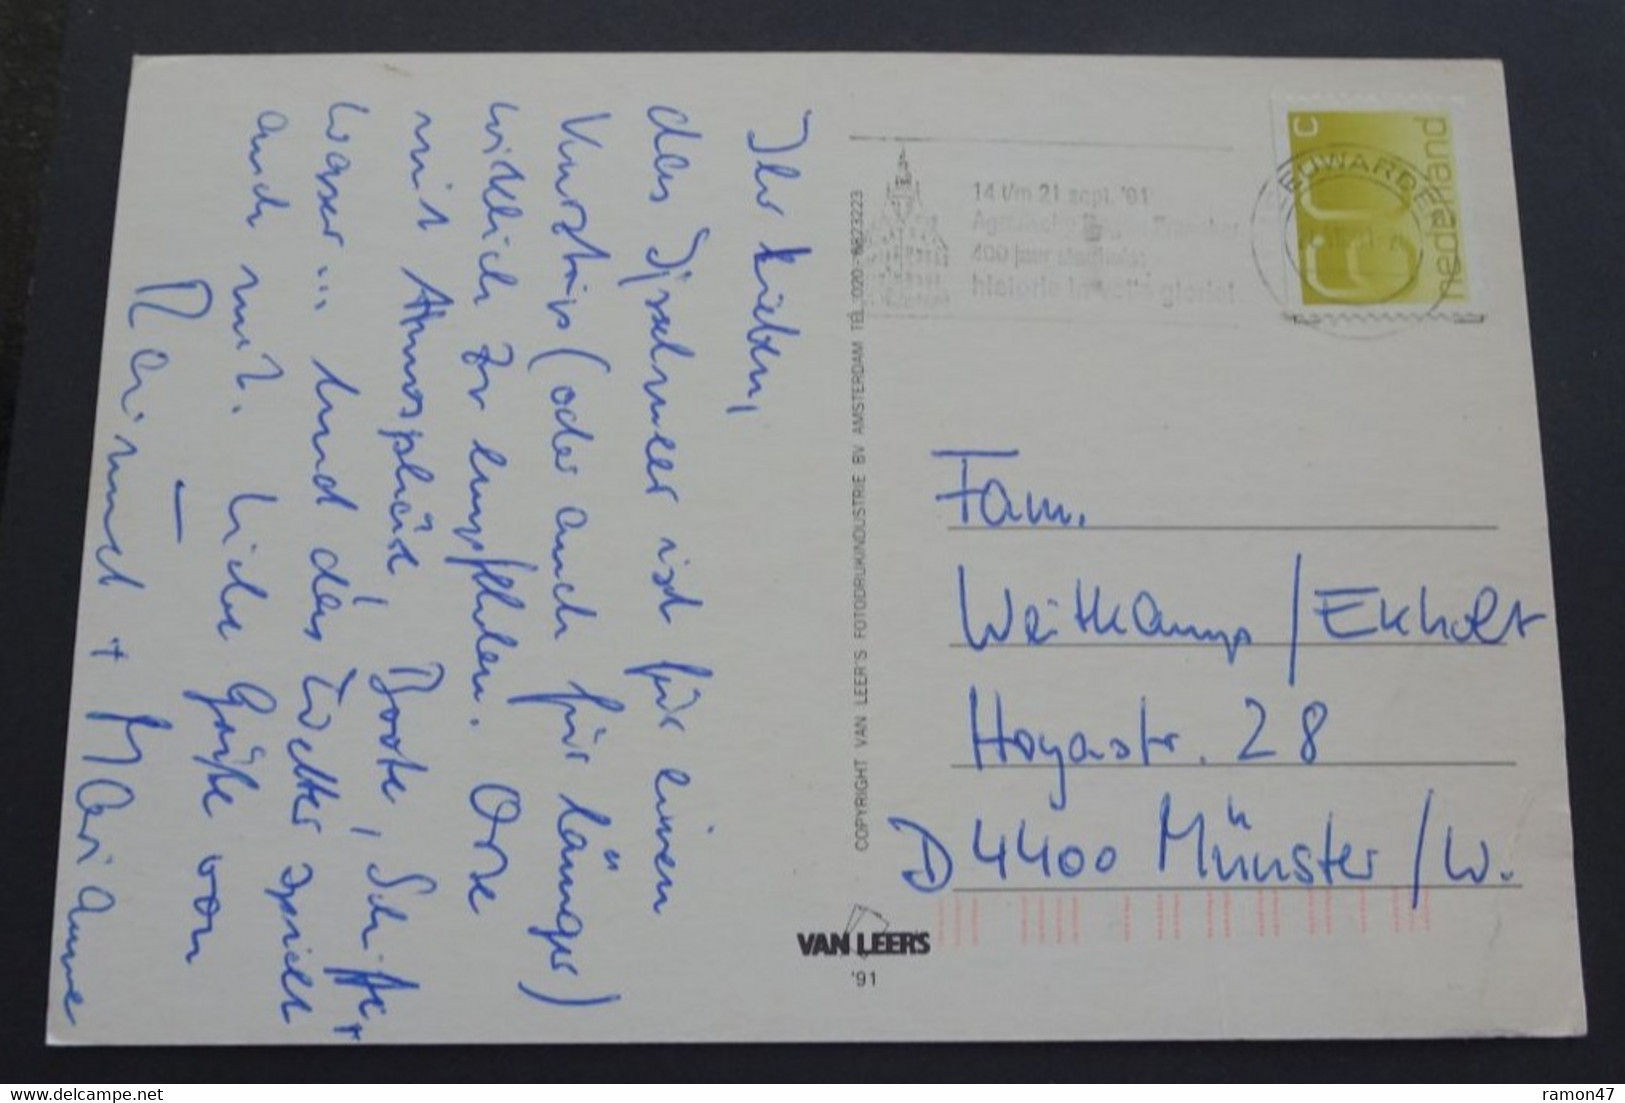 Ihr Lieben,
das Ijselmeer ist für einen
Kurztrip (oder auch für länger)
wirklich zu empfehlen. Orte
mit Atmosphäre, Boote, Schiffe +
Wasser... und das Wetter spielt
auch mit. Liebe Grüße von
Reimund + Marianne
COPYRIGHT VAN LEER'S FOTODRUKINDUSTRIE BV AMSTERDAM TEL. 020-6823223
VAN LEER'S
'91
14 t/m 21 sept. '91
400 jaar
historie in volle glorie!
LEEUWARDEN
60 c
nederland
Fam.
Weitkamp / Ekholt
Hoyastr. 28
D 4400 Münster / W.
ramon47